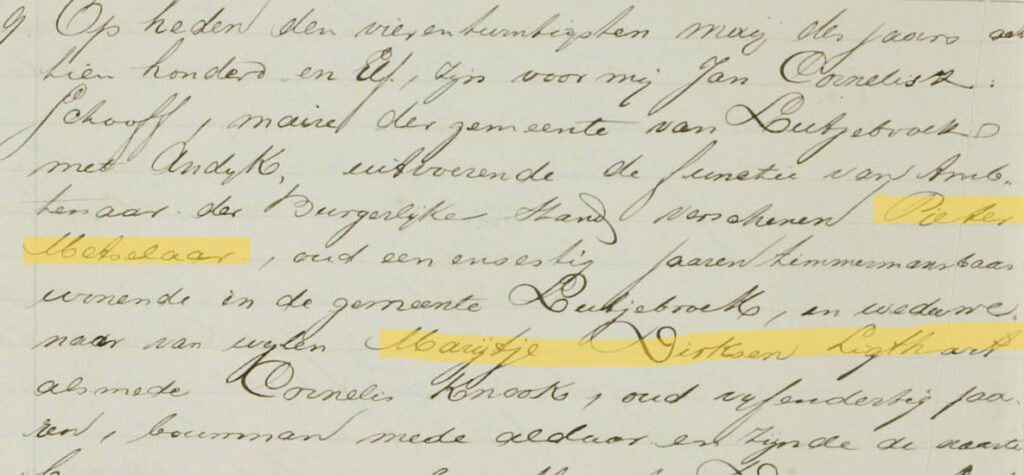 9 Op heden den vierentwintigsten maij des jaars acht
tien honderd en Elf, zijn voor mij Jan Cornelisz:
Schooff, maire der gemeente van Lutjebroek
met Andyk, uitvoerende de functie van Amb-
tenaar der Burgerlijke Stand verschenen Pieter
Metselaar, oud een ensestig jaaren timmermansbaas
wonende in de gemeente Lutjebroek, en weduwe-
naar van wylen Marijtje Dirksen Ligthart
alsmede Cornelis Knook, oud vyfendertig jaa-
ren, bouwman mede aldaar en zijnde de naaste